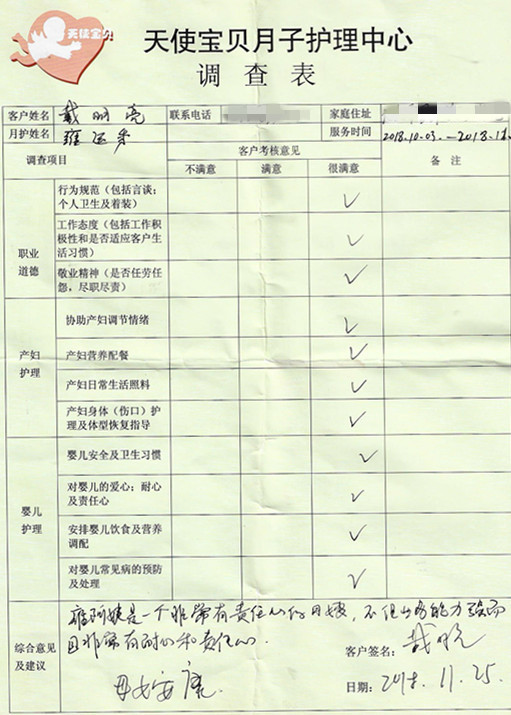 天使宝贝
天使宝贝月子护理中心
调查表
客户姓名 戴明亮 联系电话 家庭住址
月护姓名 服务时间 2018.10.03.—2018.11.
调查项目 客户考核意见 备注
不满意 满意 很满意
职业道德
行为规范（包括言谈；
个人卫生及着装） ✓
工作态度（包括工作积
极性和是否适应客户生
活习惯） ✓
敬业精神（是否任劳任
怨，尽职尽责） ✓
产妇护理
协助产妇调节情绪 ✓
产妇营养配餐 ✓
产妇日常生活照料 ✓
产妇身体（伤口）护
理及体型恢复指导 ✓
婴儿护理
婴儿安全及卫生习惯 ✓
对婴儿的爱心；耐心
及责任心 ✓
安排婴儿饮食及营养
调配 ✓
对婴儿常见病的预防
及处理 ✓
综合意见及建议
雍阿姨是一个非常有责任心的月嫂，不但业务能力强而
且非常有耐心和责任心.
母女安康
客户签名：
日期：2018.11.25.